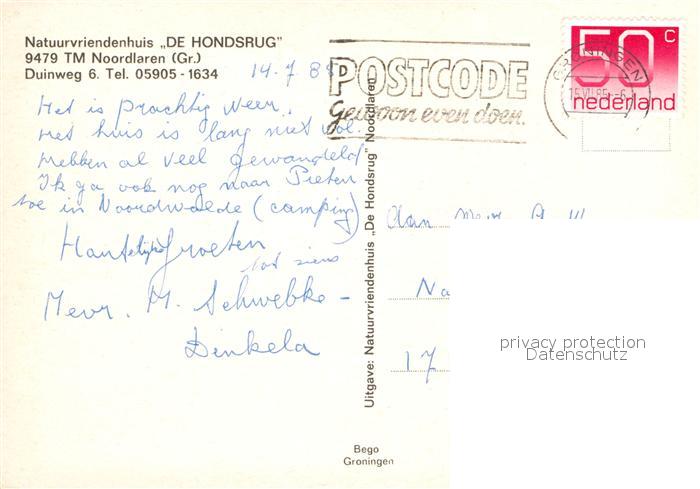 Natuurvriendenhuis „DE HONDSRUG"
9479 TM Noordlaren (Gr.)
Duinweg 6. Tel. 05905 - 1634
14.7.85
Het is prachtig weer.
Het huis is lang niet vol.
Hebben al veel gewandeld
Ik ga ook nog naar Pieten
toe in Noordwolde (camping)
Hartelijke Groeten
tot ziens
Mevr. M. Schwebke -
Dinkela
POSTCODE
Gewoon even doen.
GRONINGEN
50 C
nederland
Aan Mevr.
Na
17
Uitgave: Natuurvriendenhuis „De Hondsrug" Noordlaren
Bego
Groningen
privacy protection
Datenschutz